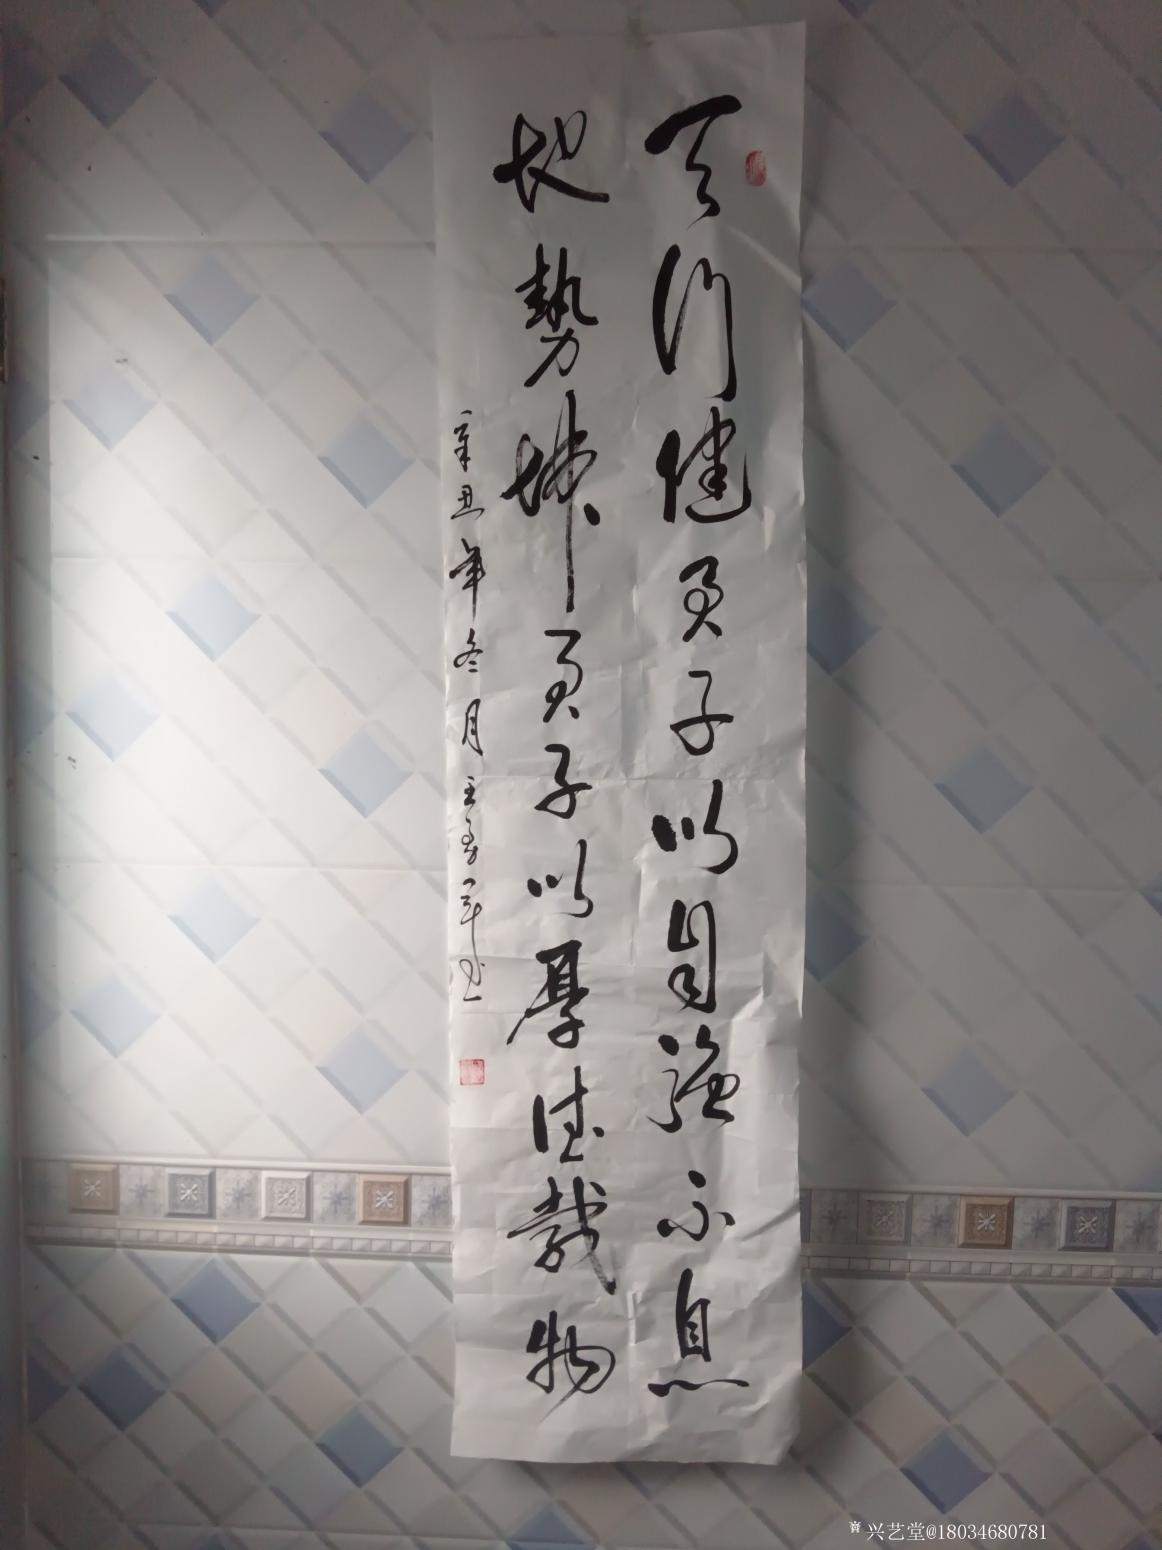 天行健君子以自强不息
地势坤君子以厚德载物
辛丑年冬月王勇军书
兴艺堂@18034680781